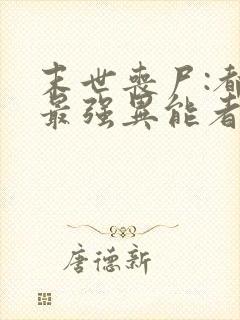 末世丧尸:都
最强异能者
唐德新